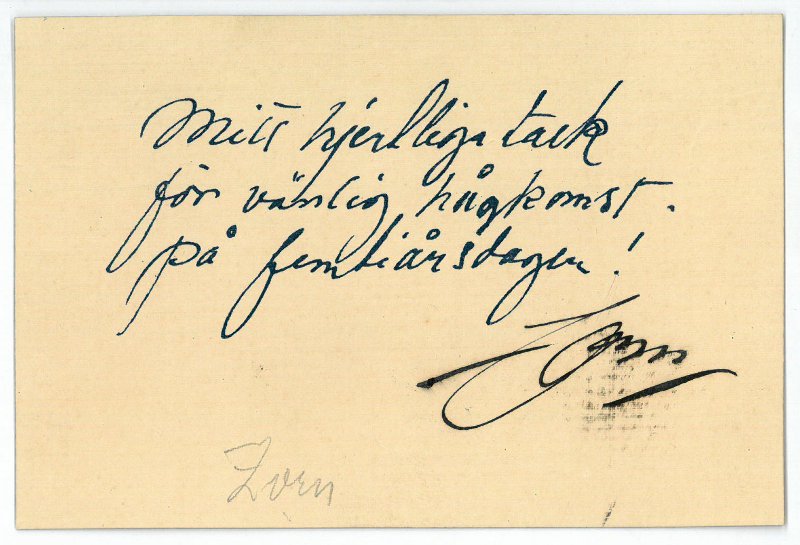 Mitt hjertliga tack
för vänlig hågkomst.
på femtiårsdagen!
Zorn
Zorn